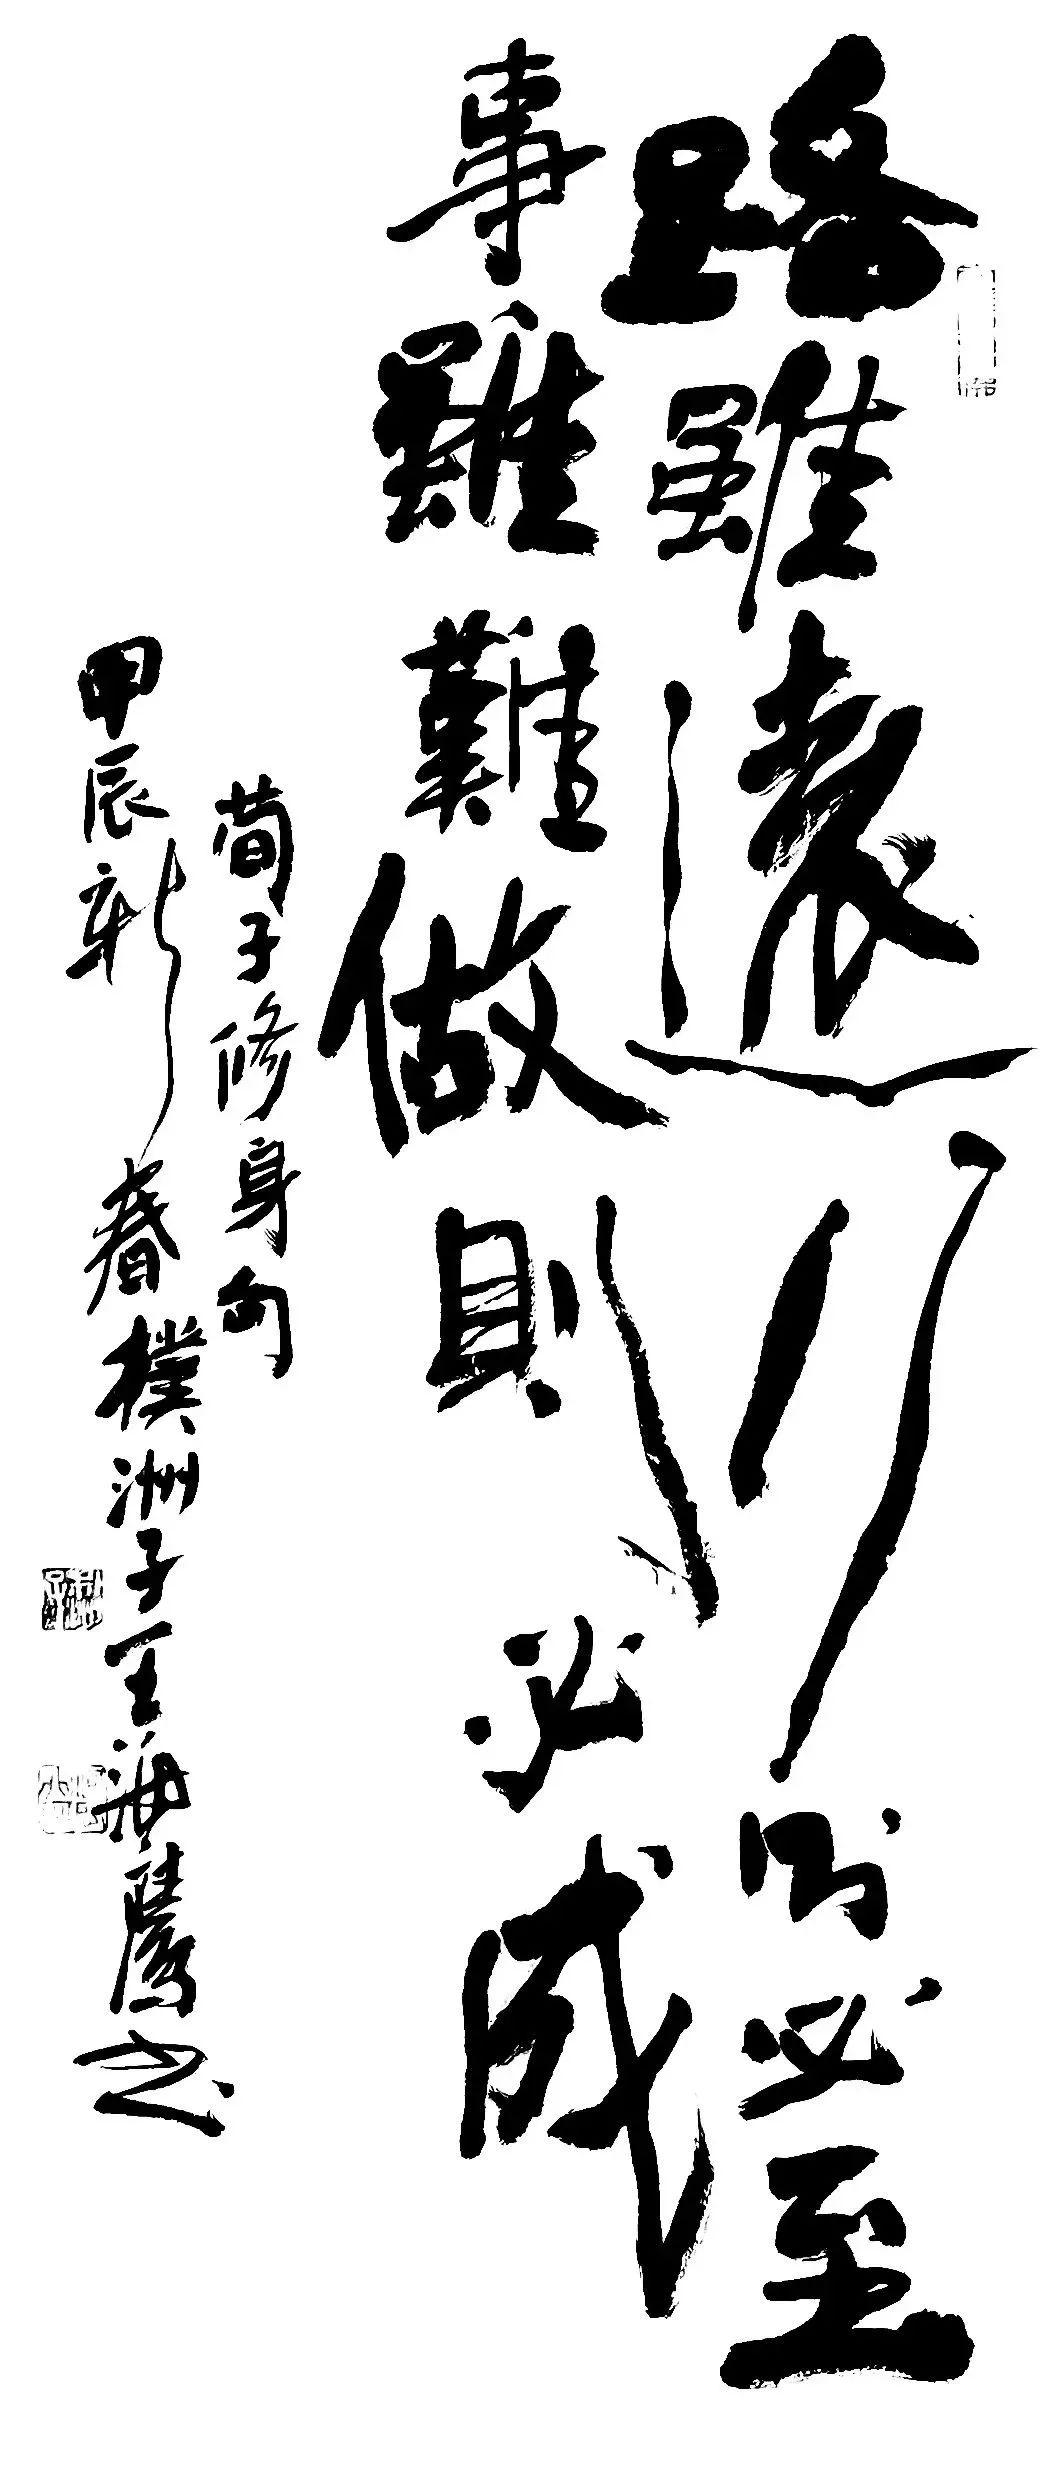 路雖遠行则必至
事雖難做則必成
荀子修身句
甲辰新春樸洲子王海鷹书